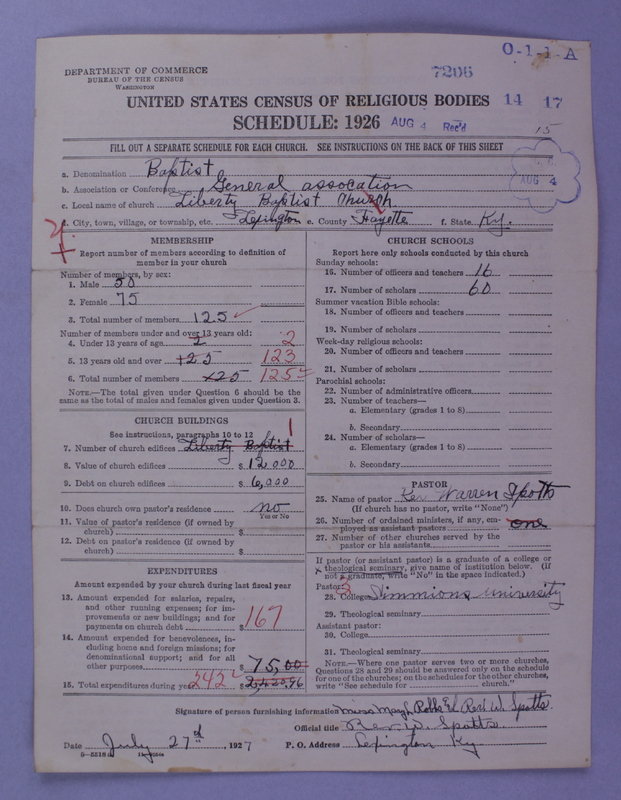 O-1-1-A
DEPARTMENT OF COMMERCE
BUREAU OF THE CENSUS
WASHINGTON
7206
UNITED STATES CENSUS OF RELIGIOUS BODIES 14 17
SCHEDULE: 1926 AUG 4 Rec'd
15
FILL OUT A SEPARATE SCHEDULE FOR EACH CHURCH. SEE INSTRUCTIONS ON THE BACK OF THIS SHEET
AUG 4
a. Denomination Baptist
b. Association or Conference General assocation
c. Local name of church Liberty Baptist Church
d. City, town, village, or township, etc. Lexington e. County Fayette f. State Ky.
MEMBERSHIP
Report number of members according to definition of
member in your church
Number of members, by sex:
1. Male 50
2. Female 75
3. Total number of members 125
Number of members under and over 13 years old:
4. Under 13 years of age 2 2
5. 13 years old and over 123
6. Total number of members 125 125
NOTE.—The total given under Question 6 should be the
same as the total of males and females given under Question 3.
CHURCH BUILDINGS
See instructions, paragraphs 10 to 12
7. Number of church edifices Liberty Baptist 1
8. Value of church edifices $ 12000
9. Debt on church edifices $ 6,000
10. Does church own pastor's residence no
Yes or No
11. Value of pastor's residence (if owned by
church) $
12. Debt on pastor's residence (if owned by
church) $
EXPENDITURES
Amount expended by your church during last fiscal year
13. Amount expended for salaries, repairs,
and other running expense; for im-
provements or new buildings; and for
payments on church debt $ 167
14. Amount expended for benevolences, in-
cluding home and foreign missions; for
denominational support; and for all
other purposes $ 75,00
15. Total expenditures during year 242 $
CHURCH SCHOOLS
Report here only schools conducted by this church
Sunday schools:
16. Number of officers and teachers 16
17. Number of scholars 60
Summer vacation Bible schools:
18. Number of officers and teachers
19. Number of scholars
Week-day religious schools:
20. Number of officers and teachers
21. Number of scholars
Parochial schools:
22. Number of administrative officers
23. Number of teachers—
a. Elementary (grades 1 to 8)
b. Secondary
24. Number of scholars—
a. Elementary (grades 1 to 8)
b. Secondary
PASTOR
25. Name of pastor Rev Warren Spotts
(If church has no pastor, write "None")
26. Number of ordained ministers, if any, em-
ployed as assistant pastors one
27. Number of other churches served by the
pastor or his assistants
If pastor (or assistant pastor) is a graduate of a college or
theological seminary, give name of institution below. (If
not a graduate, write "No" in the space indicated.)
Pastor:
28. College Simmions University
29. Theological seminary
Assistant pastor:
30. College
31. Theological seminary
NOTE.—Where one pastor serves two or more churches,
Questions 28 and 29 should be answered only on the schedule
for one of the churches; on the schedules for the other churches,
write "See schedule for church."
Signature of person furnishing information Miss May W. Spotts.
Official title Rev. W. Spotts.
Date July 27, 1927 P. O. Address Lexington Ky